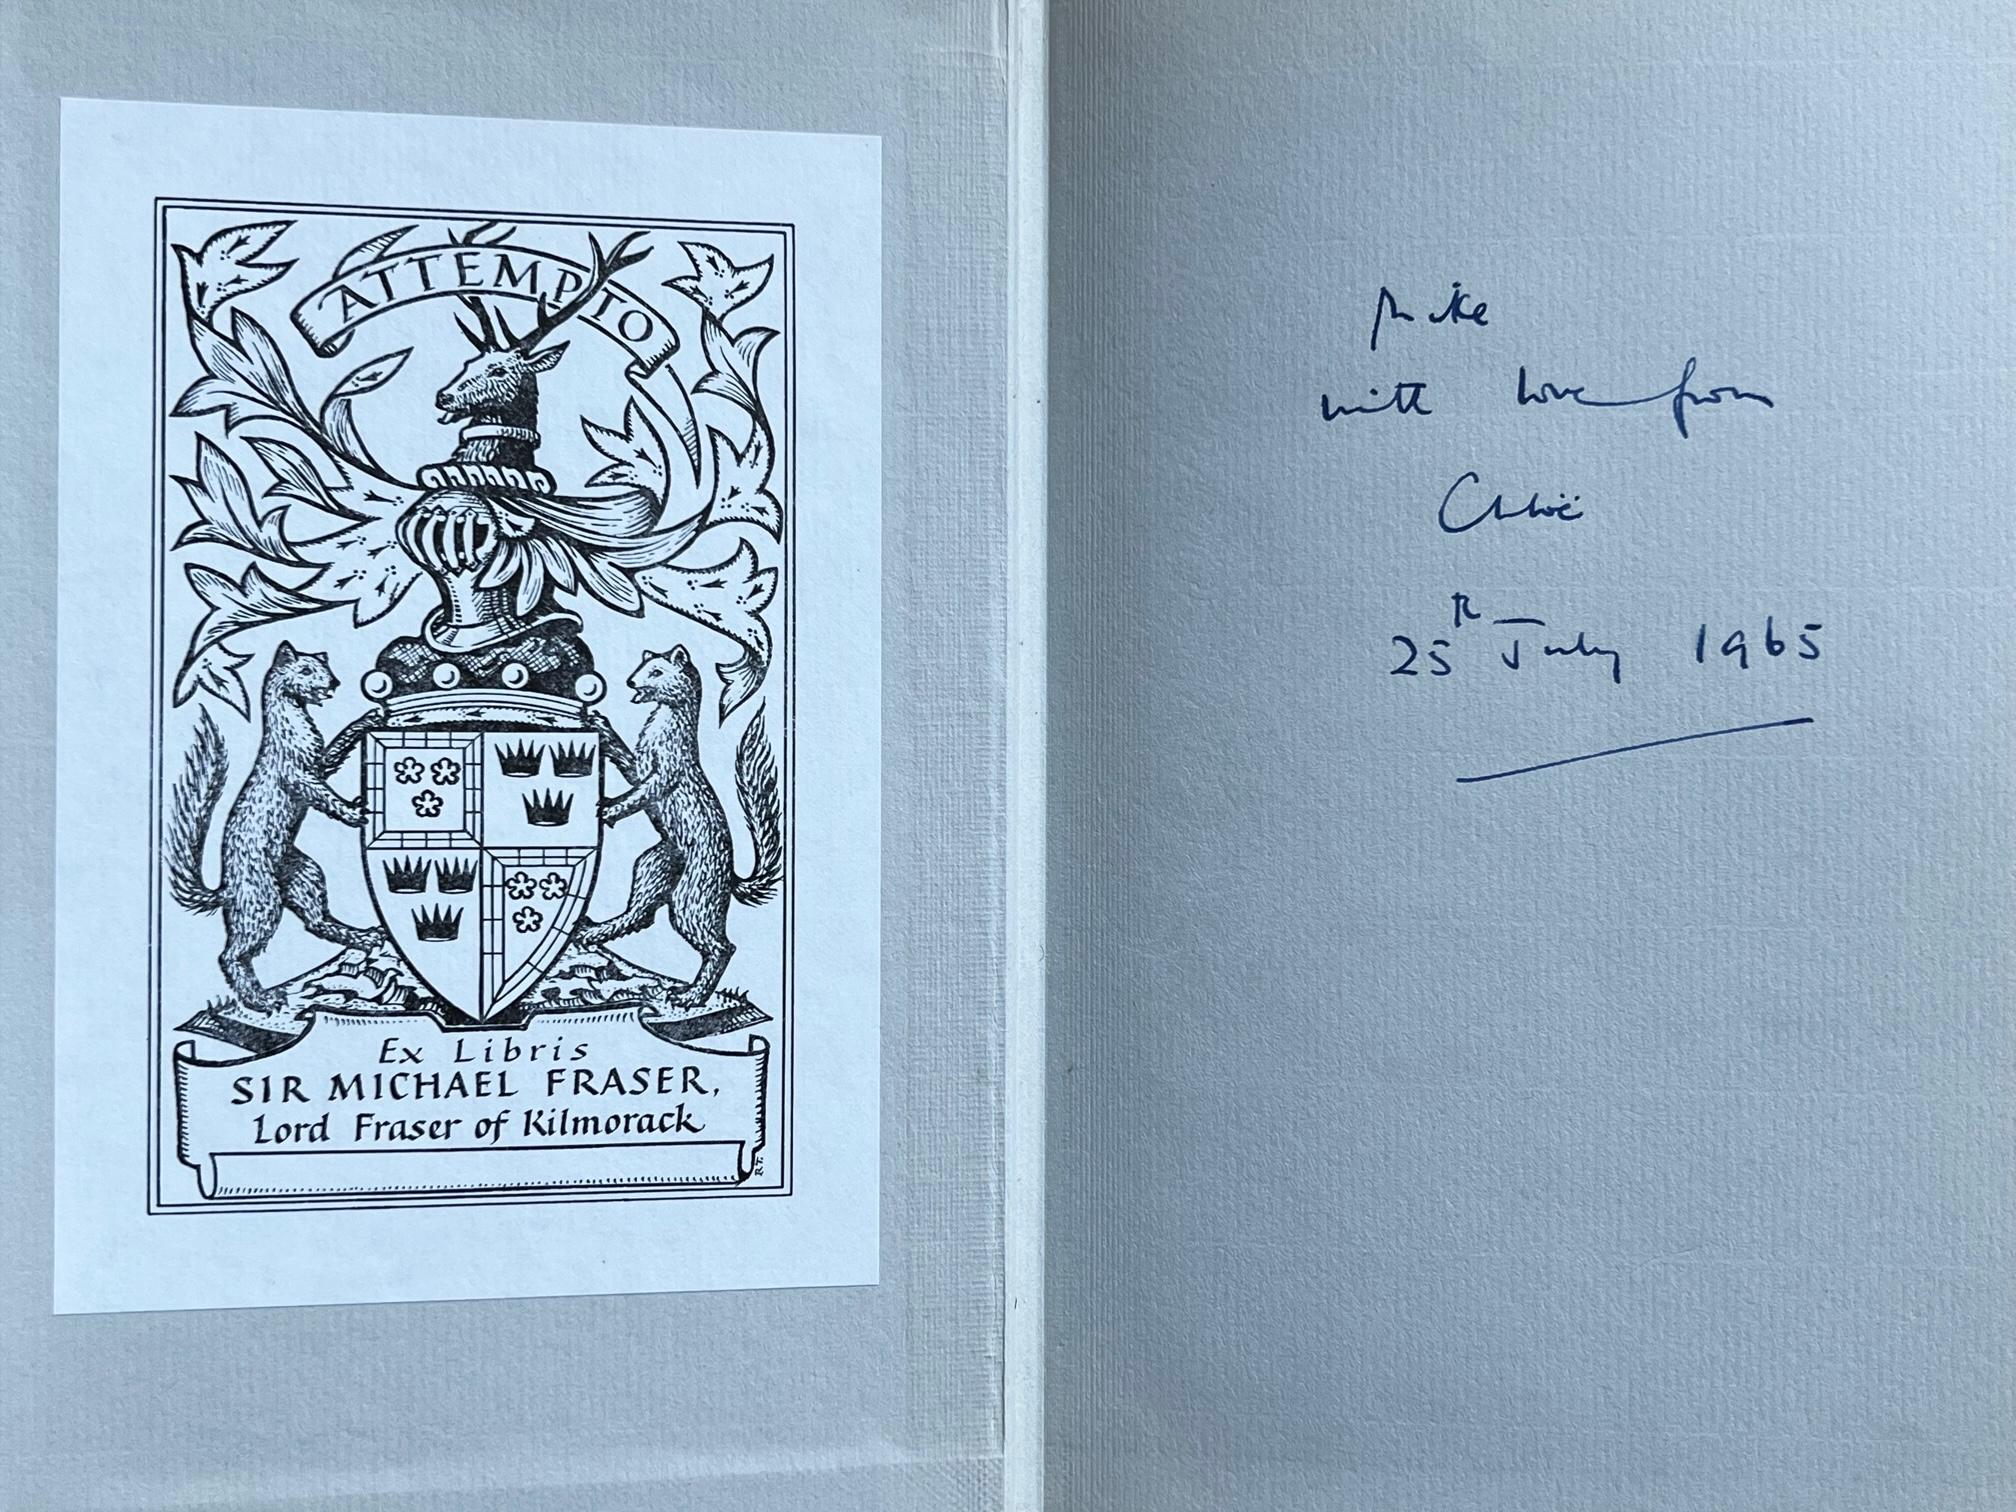 ATTEMPTO
Ex Libris
SIR MICHAEL FRASER,
Lord Fraser of Kilmorack
R.T.
Mike
with love from
Chloë
25th July 1965